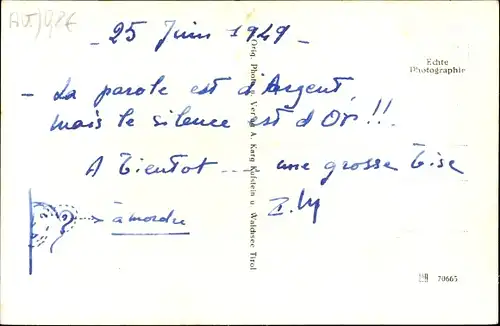 25 Juin 1949 -
Echte
Photographie
- La parole est d'Argent,
mais le silence est d'Or!!!
A Bientot --- une grosse Bise
à mordre
Orig. Photo u. Verlag A. Karg Kufstein u. Waldsee Tirol
70665